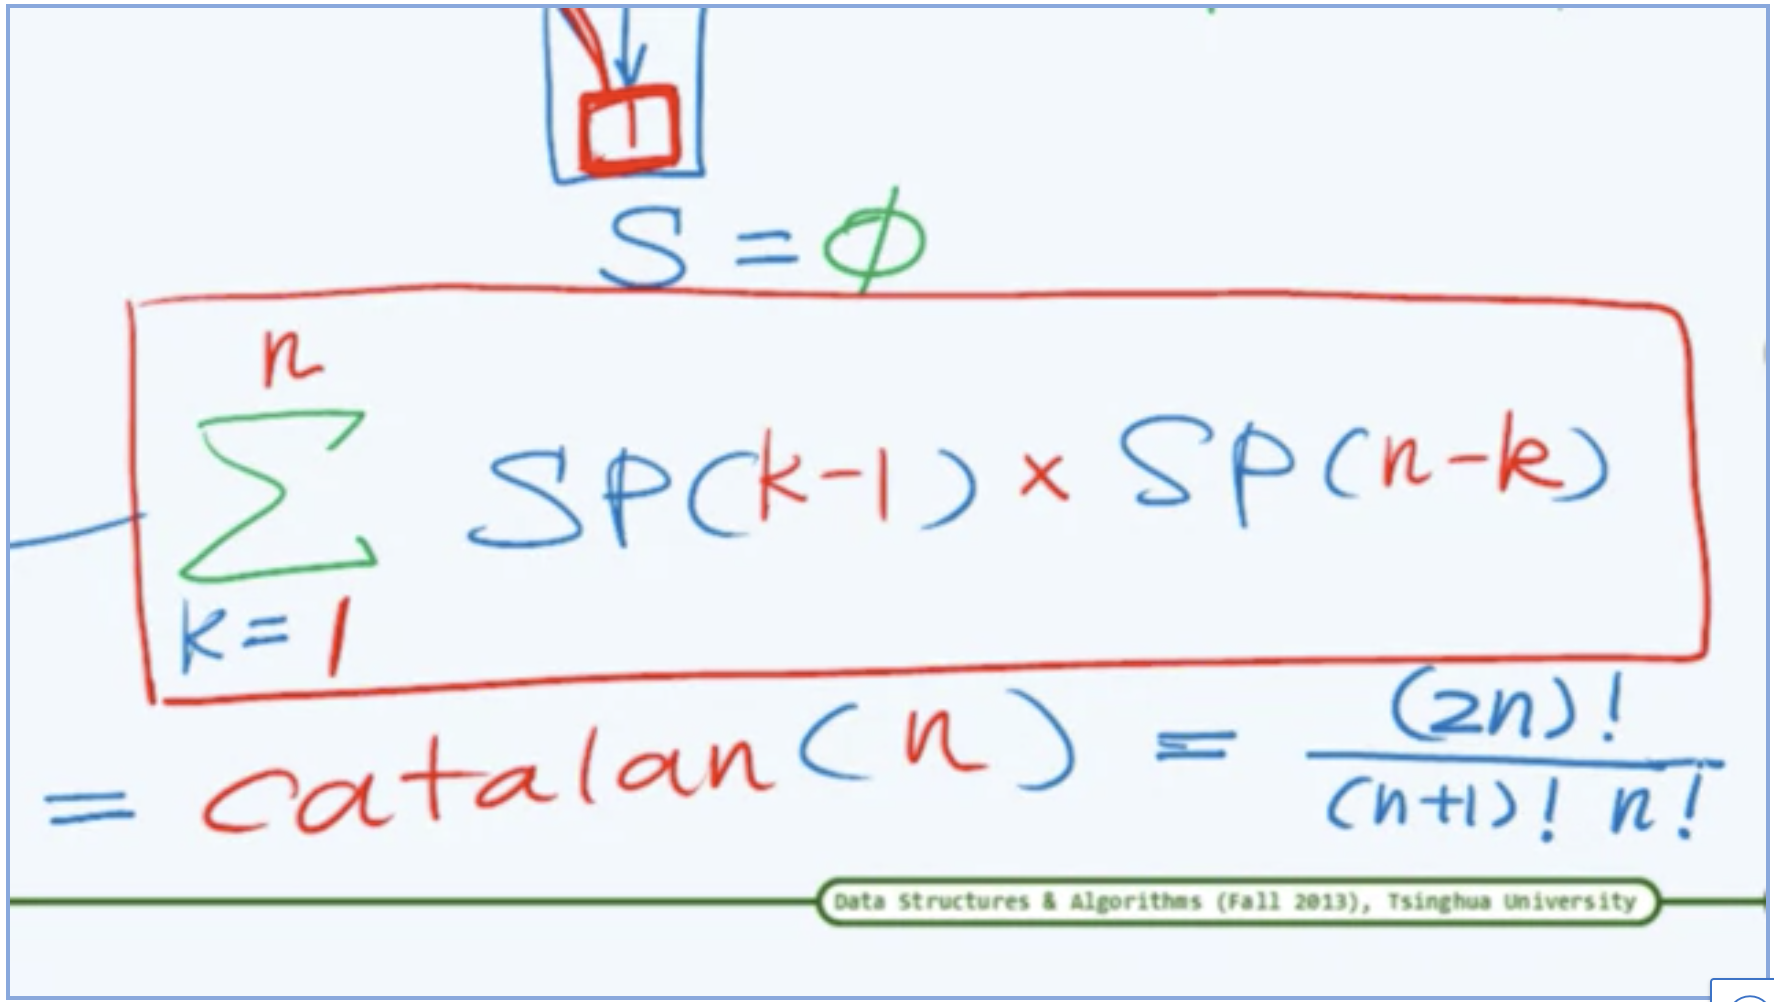 1
S = ϕ
n
∑ SP(k-1) × SP(n-k)
k=1
= catalan(n) = (2n)! / (n+1)! n!
Data Structures & Algorithms (Fall 2013), Tsinghua University